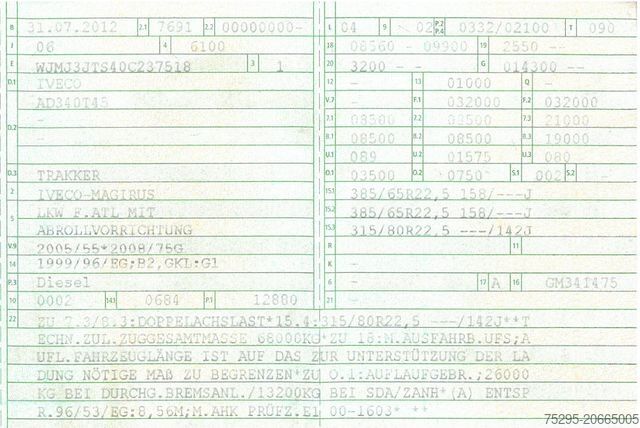 B 31.07.2012 2.1 7691 2.2 00000000- L 04 9 02 P.2 P.4 0332/02100 T 090
J 06 4 6100 18 08560 - 09900 19 2550 --
E WJMJ3JTS40C237518 3 1 20 3200 -- - G 014300 --
D.1 IVECO 12 - 13 01000 Q -
AD340T45 V.7 - F.1 032000 F.2 032000
- 7.1 08500 7.2 08500 7.3 21000
D.2 - 8.1 08500 8.2 08500 8.3 19000
U.1 089 U.2 01575 U.3 080
D.3 TRAKKER O.1 03500 O.2 0750 S.1 002 S.2 --
2 IVECO-MAGIRUS 15.1 385/65R22,5 158/---J
5 LKW F.ATL MIT 15.2 385/65R22,5 158/---J
ABROLLVORRICHTUNG 15.3 315/80R22,5 ---/142J
V.9 2005/55*2008/75G R 11
14 1999/96/EG;B2,GKL:G1 K -
P.3 Diesel 6 - 17 A 16 GM341475
10 0002 14.1 0684 P.1 12880 21
22 ZU 7.3/8.3:DOPPELACHSLAST*15.4:315/80R22,5 ---/142J**T
ECHN.ZUL.ZUGGESAMTMASSE 68000KG*ZU 18:M.AUSFAHRB.UFS;A
UFL.FAHRZEUGLÄNGE IST AUF DAS ZUR UNTERSTÜTZUNG DER LA
DUNG NÖTIGE MAß ZU BEGRENZEN*ZU O.1:AUFLAUFGEBR.;26000
KG BEI DURCHG.BREMSANL./13200KG BEI SDA/ZANH*(A) ENTSP
R.96/53/EG:8,56M;M.AHK PRÜFZ.E1 00-1603* **
75295-20665005